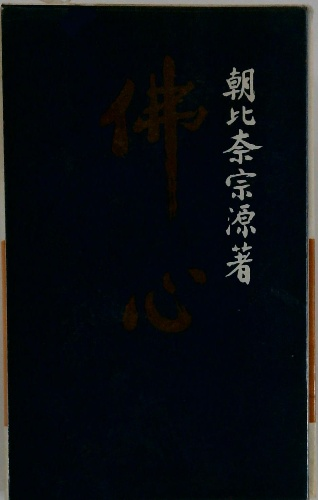 朝比奈宗源著
佛心